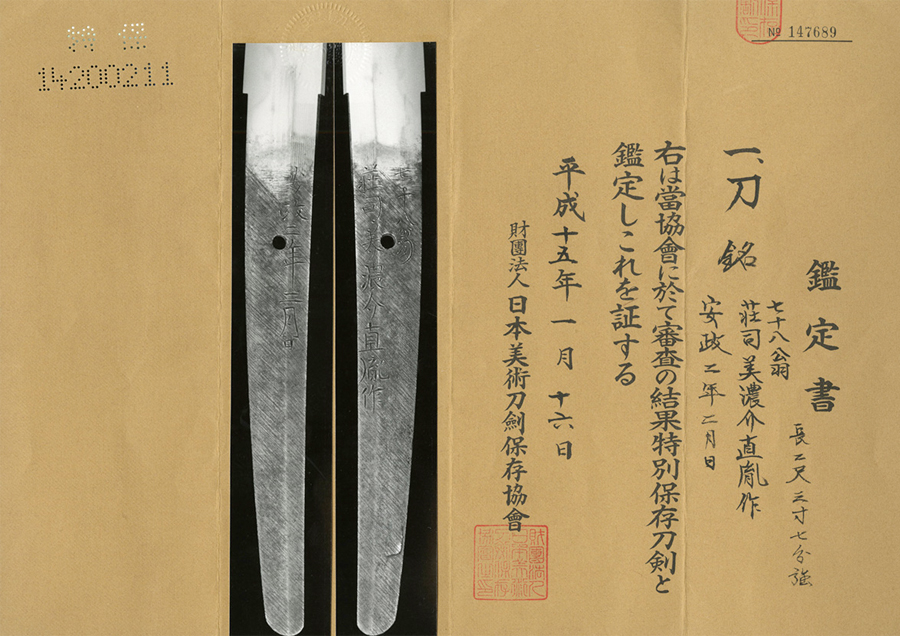 № 147689
鑑定書
長二尺三寸七分強
一、刀 銘
七十八公翁
荘司美濃介直胤作
安政二年二月日
右は當協會に於て審査の結果特別保存刀剣と
鑑定しこれを証する
平成十五年一月十六日
財團法人日本美術刀劍保存協會
荘司美濃介直胤作
特保
14200211